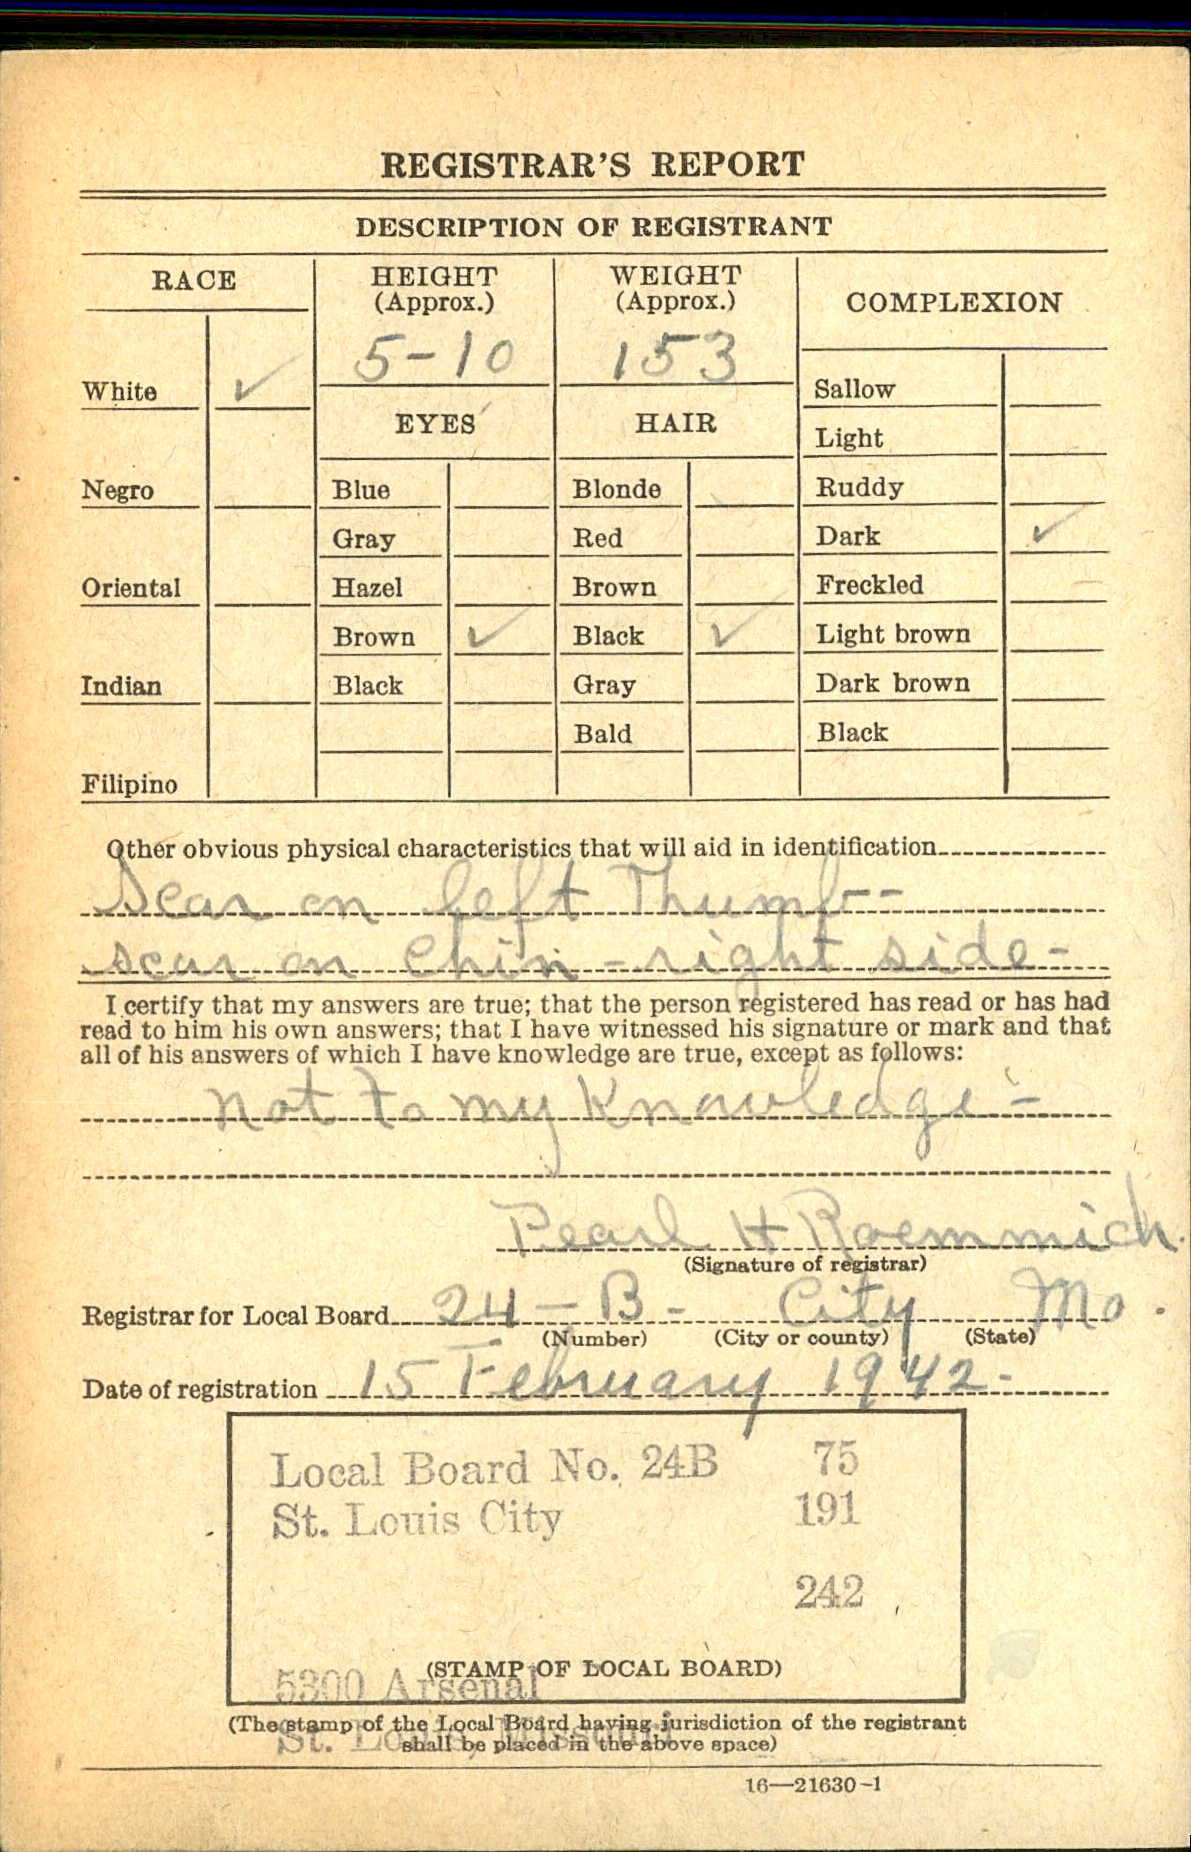 REGISTRAR'S REPORT
DESCRIPTION OF REGISTRANT
RACE
HEIGHT
(Approx.)
WEIGHT
(Approx.)
COMPLEXION
5-10
153
White ✓
EYES
HAIR
Sallow
Light
Negro
Blue
Blonde
Ruddy
Gray
Red
Dark ✓
Oriental
Hazel
Brown
Freckled
Brown ✓
Black ✓
Light brown
Indian
Black
Gray
Dark brown
Bald
Black
Filipino
Other obvious physical characteristics that will aid in identification
Scar on left Thumb--
scar on chin - right side -
I certify that my answers are true; that the person registered has read or has had
read to him his own answers; that I have witnessed his signature or mark and that
all of his answers of which I have knowledge are true, except as follows:
not to my Knowledge -
Pearl H Roemmich.
(Signature of registrar)
Registrar for Local Board 24 - B - City Mo.
(Number) (City or county) (State)
Date of registration 15 February 1942-
Local Board No. 24B 75
St. Louis City 191
242
(STAMP OF LOCAL BOARD)
5300 Arsenal
(The stamp of the Local Board having jurisdiction of the registrant
St. Louis, Missouri
shall be placed in the above space)
16—21630-1